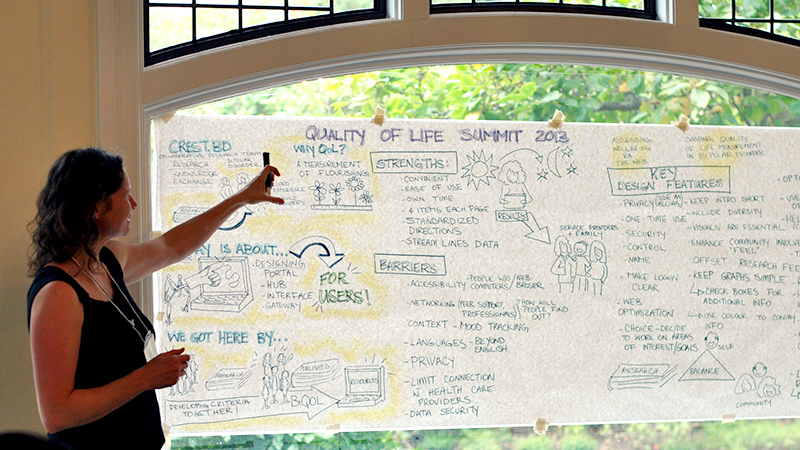 QUALITY OF LIFE SUMMIT 2013
CREST.BD
COLLABORATIVE RESEARCH TEAM
BIPOLAR
DISORDER
RESEARCH
KNOWLEDGE
EXCHANGE
EXPERIENCE
RESEARCH
WHY QoL?
A MEASUREMENT
OF FLOURISHING
IS ABOUT...
DESIGNING
PORTAL
- HUB
- INTERFACE
- GATEWAY
FOR
USERS!
WE GOT HERE BY...
DEVELOPING CRITERIA
TOGETHER!
PUBLISHED
RESOURCES
BiQOL
STRENGTHS:
- CONVENIENT
- EASE OF USE
- OWN TIME
- 4 ITEMS EACH PAGE
- STANDARDIZED
DIRECTIONS
- STREAM LINES DATA
RESULTS
SERVICE PROVIDERS
+ FAMILY
BARRIERS
- ACCESSIBILITY
- PEOPLE W/O
COMPUTERS
/WEB
BROWSER
- NETWORKING
(PEER SUPPORT
PROFESSIONALS)
HOW WILL
PEOPLE FIND
OUT?
- CONTEXT - MOOD TRACKING
- LANGUAGES - BEYOND
ENGLISH
- PRIVACY
- LIMIT CONNECTION
W HEALTH CARE
PROVIDERS
- DATA SECURITY
ASSESSING
WELLBEING
VIA
THE WEB
QUALITY
OF LIFE
IN BIPOLAR DISORDER
KEY
DESIGN FEATURES
- PRIVACY (USE AN ALIAS)
- ONE-TIME USE
- SECURITY
- CONTROL
- NAME
- MAKE LOGIN
CLEAR
- WEB
OPTIMIZATION
- CHOICE - DECIDE
TO WORK ON AREAS
OF INTEREST/GOALS
- KEEP INTRO SHORT
- INCLUDE DIVERSITY
- VISUALS ARE ESSENTIAL
- ENHANCE COMMUNITY
"FEEL"
- OFFSET RESEARCH
- KEEP GRAPHS SIMPLE
CHECK BOXES FOR
ADDITIONAL INFO
USE COLOUR TO
INFO
SELF
RESEARCH
BALANCE
COMMUNITY